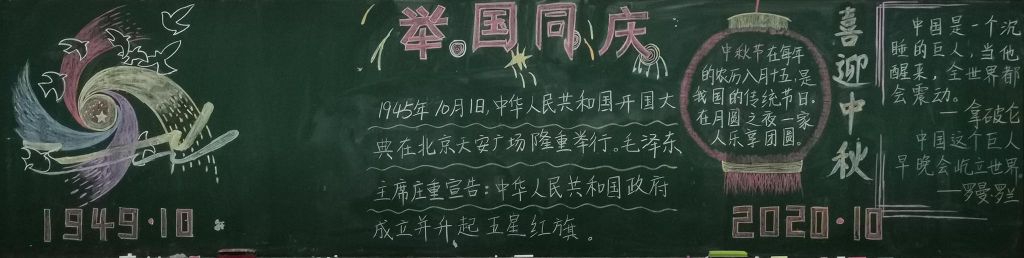 举国同庆
1945年10月1日,中华人民共和国开国大
典在北京天安广场隆重举行。毛泽东
主席庄重宣告:中华人民共和国政府
成立并升起五星红旗。
1949·10
中秋节在每年
的农历八月十五,是
我国的传统节日。
在月圆之夜一家
人乐享团圆
喜迎中秋
2020·10
中国是一个沉
睡的巨人,当他
醒来,全世界都
会震动。
—拿破仑
中国这个巨人
早晚会屹立世界。
—罗曼罗兰